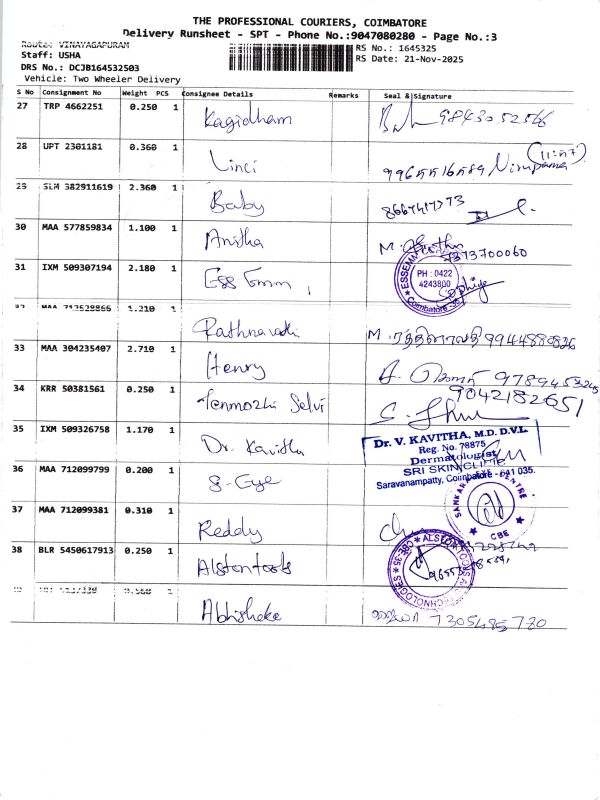 THE PROFESSIONAL COURIERS, COIMBATORE
Delivery Runsheet - SPT - Phone No.:9047080280 - Page No.:3
Route: VINAYAGAPURAM
RS No.: 1645325
Staff: USHA
RS Date: 21-Nov-2025
DRS No.: DCJB164532503
Vehicle: Two Wheeler Delivery
S No Consignment No Weight PCS Consignee Details Remarks Seal & Signature
27 TRP 4662251 0.250 1 Kagidham
28 UPT 2301181 0.360 1 Vinci
29 SLM 382911619 2.360 1 Baby
30 MAA 577859834 1.100 1 Anitha 7373700060
31 IXM 509307194 2.180 1 Ess Emm
PH : 0422
4243800
Coimbatore
32 MAA 1.210 1 Rathnavathi M. ரத்தினாவதி 9944880826
33 MAA 304235407 2.710 1 Henry 9789453245
34 KRR 50381561 0.250 1 Tenmozhi Selvi 9042182651
35 IXM 509326758 1.170 1 Dr. Kavitha
Dr. V. KAVITHA, M.D. D.V.L
Reg. No. 78875
Dermatologist
SRI SKIN CLINIC
Saravanampatty, Coimbatore - 641 035.
36 MAA 712099799 0.200 1 S-Eye
SANKARA EYE CENTRE
CBE
37 MAA 712099381 0.310 1 Reddy
38 BLR 5450617913 0.250 1 Alstontools
Abhisheke 7305485770